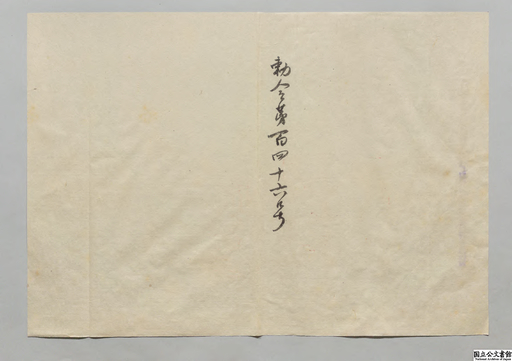 勅令第百四十六号
国立公文書館
National Archives of Japan